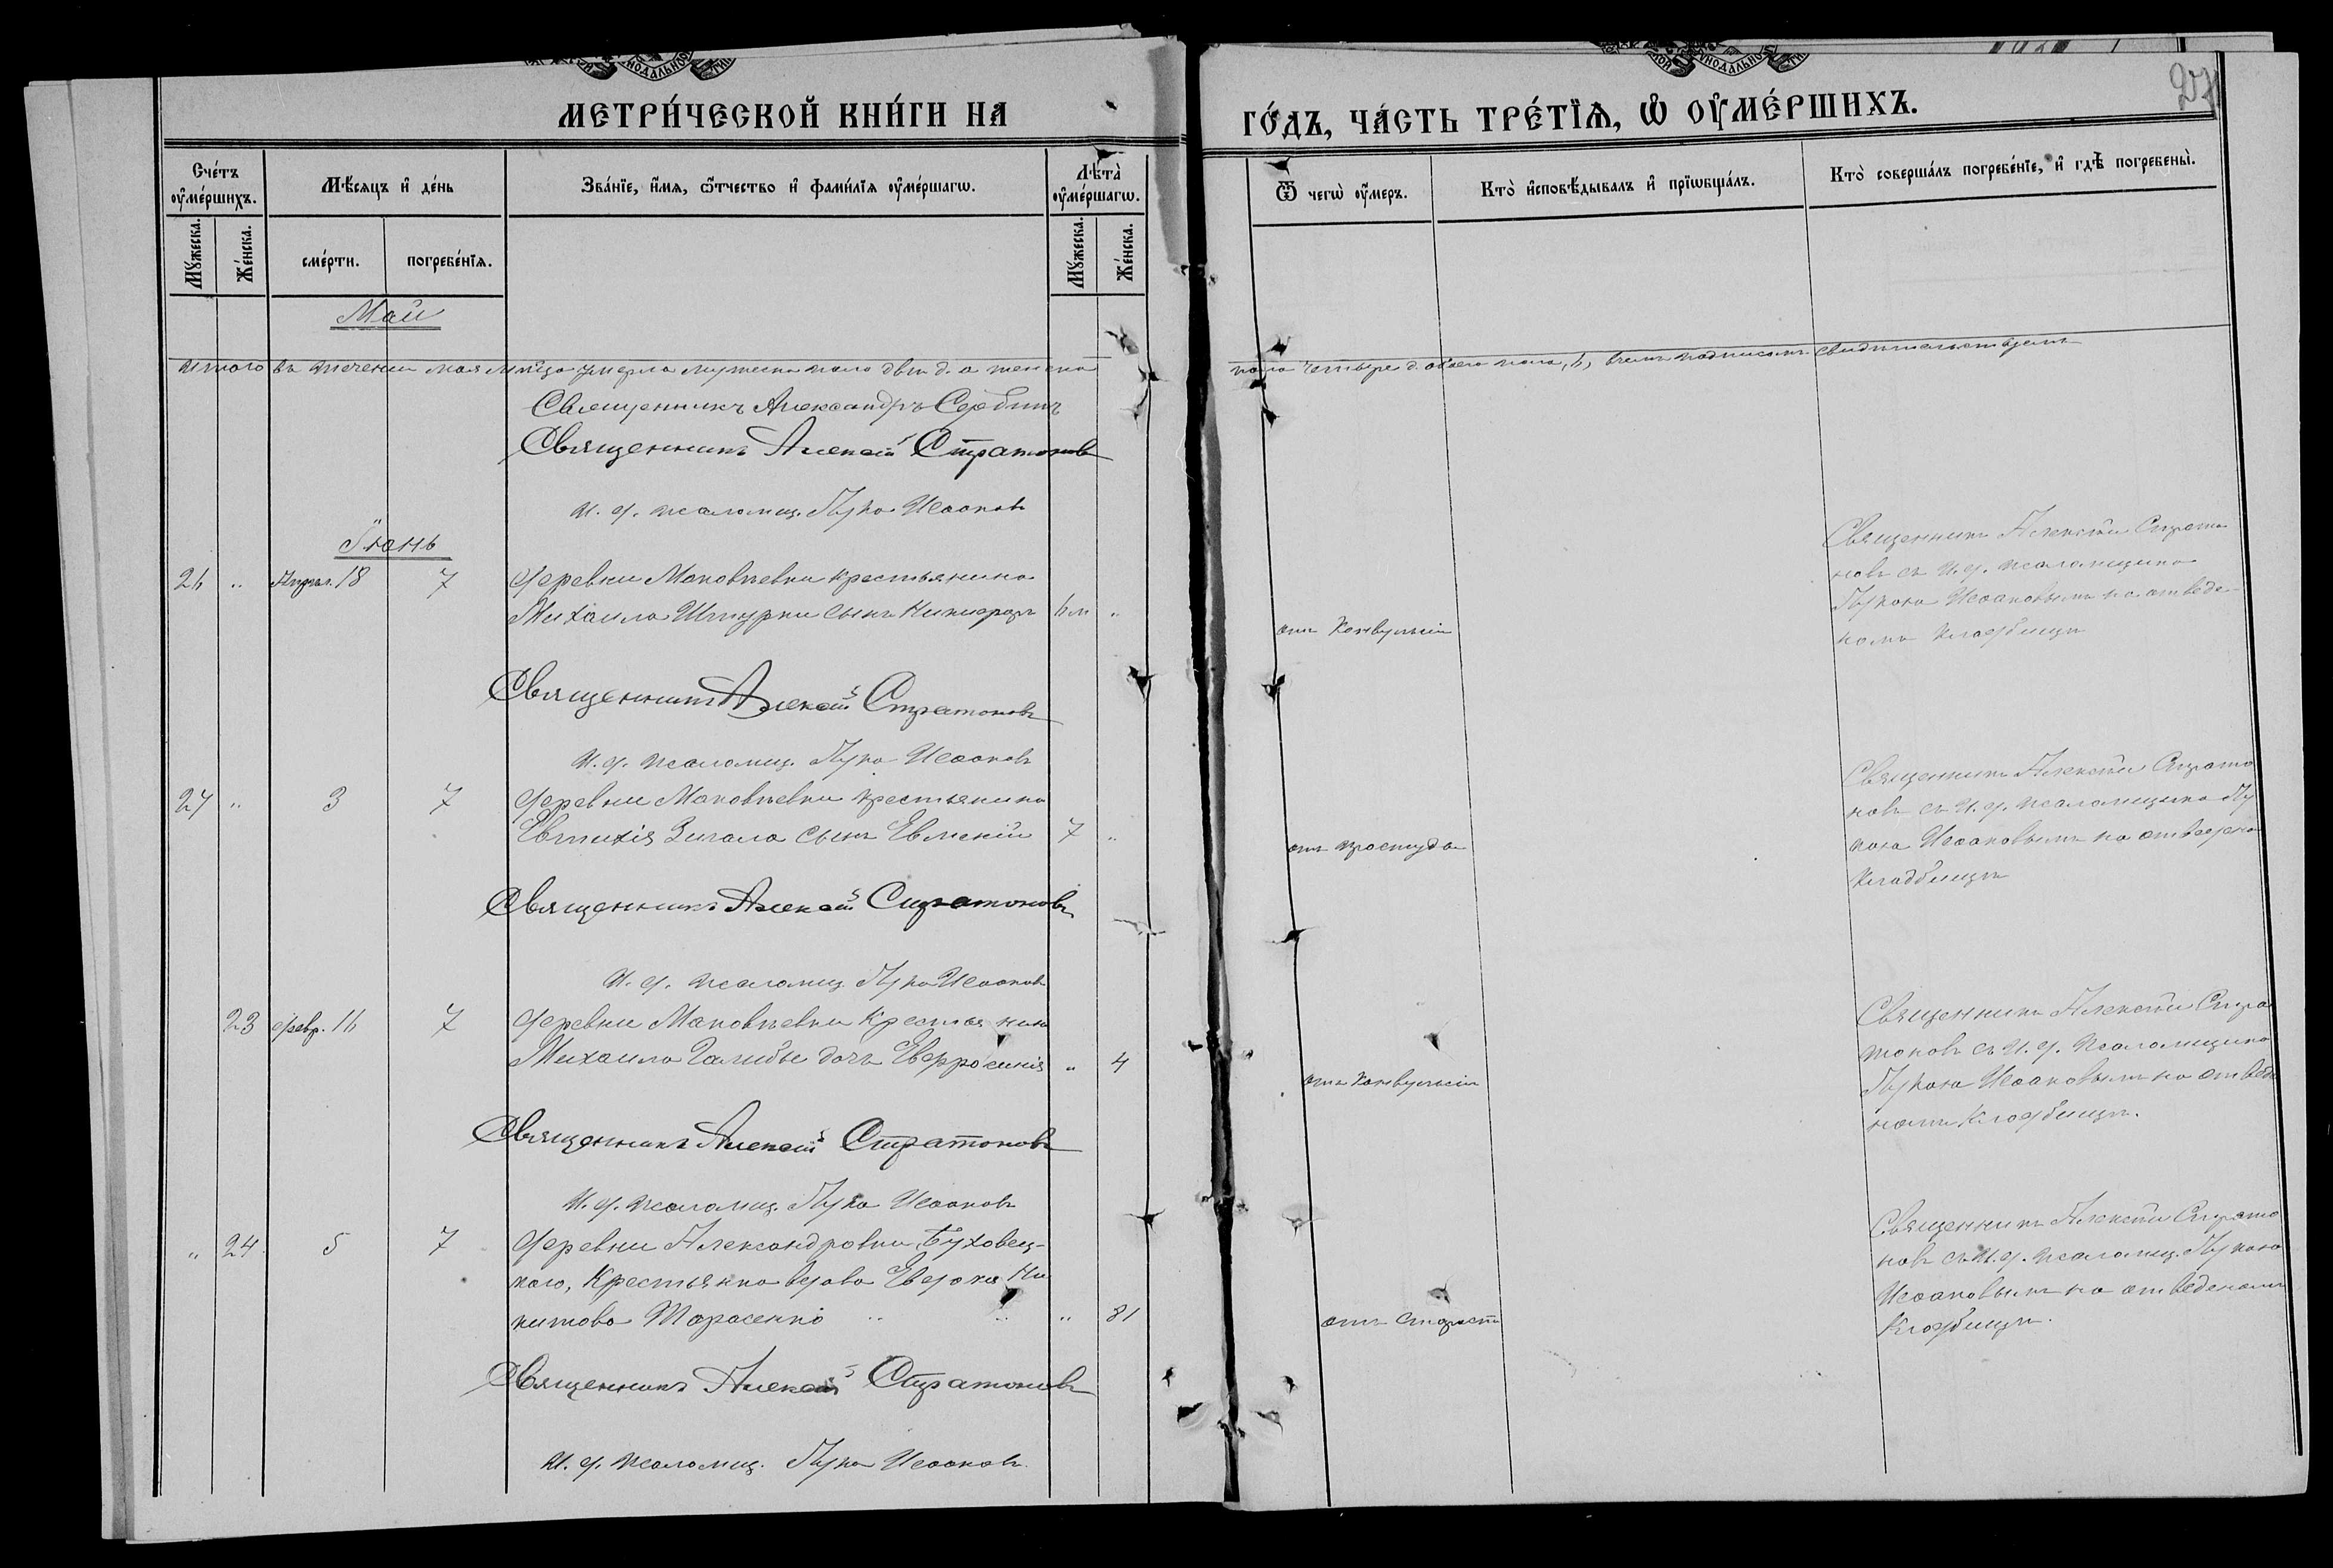 МЕТРИ́ЧЕСКОЙ КНИ́ГИ НА
ГО́ДЪ, ЧА́СТЬ ТРЕ́ТІѦ, Ѡ ОУ҆МЕ́РШИХЪ.
Сче́тъ оу҆ме́ршихъ.
Мѣ́сяцъ и҆ де́нь
Зва́нїе, и҆́мя, ѿтчество и҆ фами́лїя оу҆ме́ршагѡ.
Лѣта̀ оу҆ме́ршагѡ.
Ѿ чегѡ̀ оу҆́меръ.
Кто̀ и҆сповѣ́дывалъ и҆ прїѡбща́лъ.
Кто̀ соверша́лъ погребе́нїе, и҆ гдѣ̀ погребены̀.
Му́жеска.
Же́нска.
сме́рти.
погребе́нїя.
Му́жеска.
Же́нска.
Май
итого въ теченіи мая м-ца умерло мужеска пола два д. а женска
пола четыре д. обоего пола, 6, въ чемъ подписомъ свидѣтельствуемъ
Священникъ Александръ
Священникъ Алексій Стратоновъ
И. д. псаломщ. Лука Исааковъ
Іюнь
26 " Апрѣл. 18 7 деревни Маковѣевки крестьянина
Михаила Штурки сынъ Никифоръ 6 м "
отъ Конвульсіи
Священникъ Алексѣй Страто
новъ съ и. д. псаломщика
Лукою Исааковымъ на отведе-
номъ Кладбищѣ
Священникъ Алексій Стратоновъ
И. д. псаломщ. Лука Исааковъ
27 " 3 7 деревни Маковѣевки крестьянина
Евтихія сынъ 7 "
отъ простуды
Священникъ Алексѣй Страто
новъ съ И. д. псаломщика Лу
кою Исааковымъ на отведено
Кладбищѣ
Священникъ Алексій Стратоновъ
И. д. псаломщ Лука Исааковъ
23 Февр. 16 7 деревни Маковѣевки Крестьянина
Михаила дочь Евфросинія " 4
отъ Конвульсіи
Священникъ Алексѣй Стра
тоновъ съ И. д. Псаломщика
Лукою Исааковымъ на отведе
номъ Кладбищѣ.
Священникъ Алексій Стратоновъ
И. д. псаломщ. Лука Исааковъ
" 24 5 7 деревни Александровки, Буховец-
кого, Крестьянка вдова Евдокія Ни
китова Тарасенко " 81
отъ старости
Священникъ Алексѣй Страто
новъ съ И. д. псаломщ. Лукою
Исааковымъ на отведеномъ
Кладбищѣ.
Священникъ Алексій Стратоновъ
И. д. псаломщ. Лука Исааковъ.